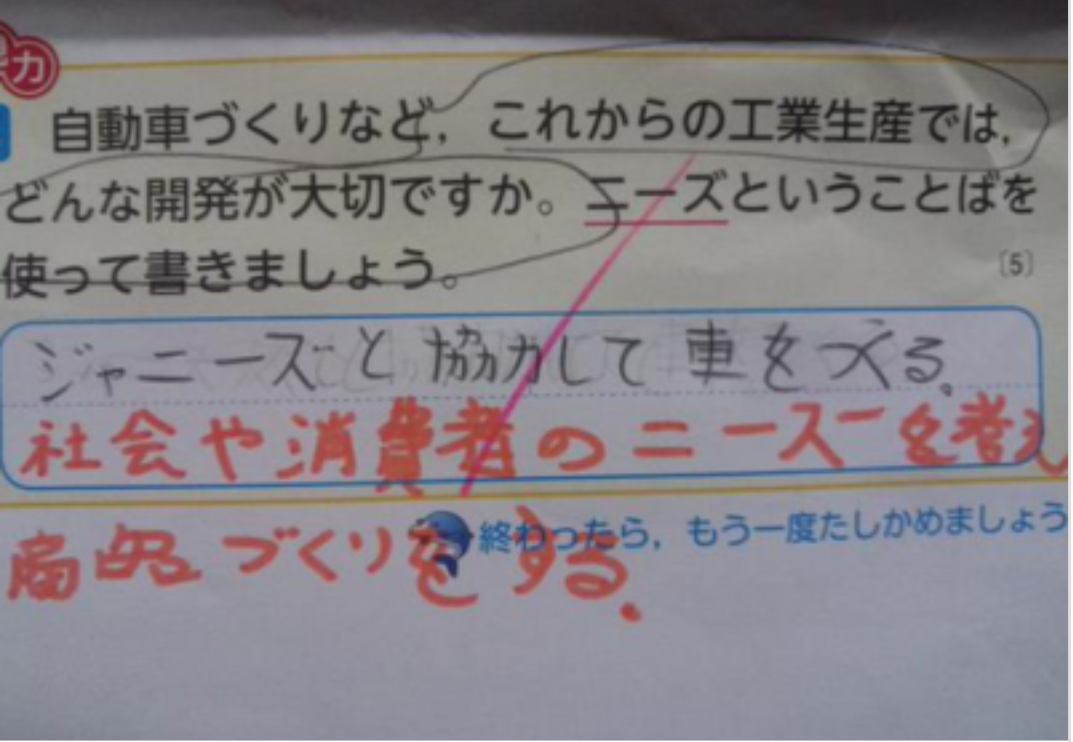 力
自動車づくりなど，これからの工業生産では，
どんな開発が大切ですか。ニーズということばを
使って書きましょう。
〔5〕
ジャニーズと協力して車をつくる。
社会や消費者のニーズを考え
商品づくりをする。
終わったら，もう一度たしかめましょう